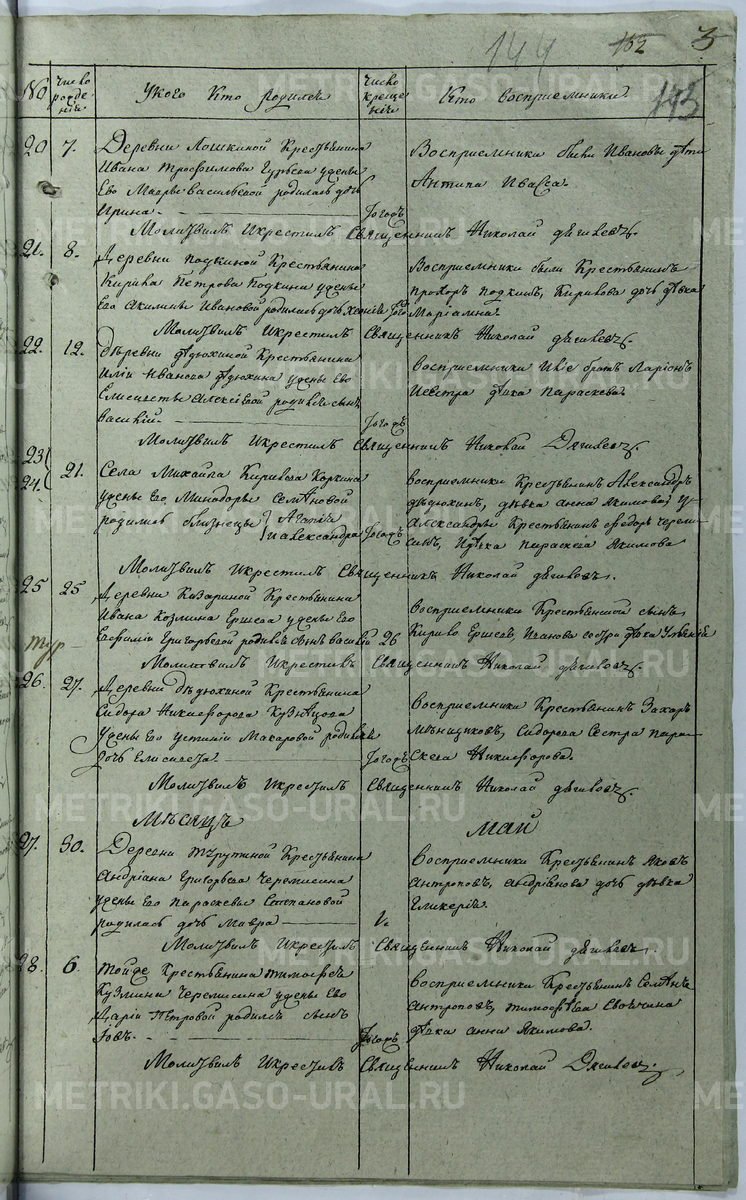 144 152 3
143
No Число рождения У кого кто родился Число крещения Кто восприемники
20 7. Деревни Лошкиной Крестьянина
Ивана Трофимова ужены
Его Марьи Васильевой родилась дочь
Ирина.
Восприемники были Ивановы дети
Антипа
Того ж
Молитвилъ И крестилъ Священникъ Николай Дягилевъ.
21. 8. Деревни Подкиной Крестьянина
Кирила Петрова Подкина ужены
Его Акилины Ивановой родилась дочь Того ж
Восприемники были Крестьянинъ
Прохоръ Подкинъ, Кирилова дочь девка
Мариамна.
Молитвилъ И крестилъ Священникъ Николай Дягилевъ.
22. 12. Деревни Дедюхиной Крестьянина
Илии Иванова Дедюхина ужены Его
Елисаветы Алексеевой родился сынъ
Василий.
Восприемники Иве братъ Ларионъ
И сестра девка Параскева.
Того ж
Молитвилъ И крестилъ Священникъ Николай Дягилевъ.
23
24. 21. Села Михаила Кирилова Коркина
ужены Его Минодоры Семеновой
родились близнецы Агапий
и Александра Того ж
Восприемники Крестьянинъ Александръ
Дедюхинъ, девка Анна Якимова, у
Александры Крестьянинъ Федоръ Череми-
синъ, И девка Параскева Якимова
Молитвилъ И крестилъ Священникъ Николай Дягилевъ.
25 25 Деревни Казариной Крестьянина
Ивана Козмина Ершева ужены Его
Евфимии Григорьевой родился сынъ Василий 26
Восприемники Крестьянской сынъ
Кирило Ершевъ, Иванова сестра девка
Молитвилъ И крестилъ Священникъ Николай Дягилевъ.
26. 27. Деревни Дедюхиной Крестьянина
Сидора Никифорова Кузнецова
ужены Его Устинии Макаровой родилась
дочь Елисавета. Того ж
Восприемники Крестьянинъ Захаръ
Меншиковъ, Сидорова Сестра Пара-
скева Никифорова.
Молитвилъ И крестилъ Священникъ Николай Дягилевъ.
Месяцъ Май
27. 30. Деревни Крестьянина
Андриана Григорьева Черемисина
ужены Его Параскевы Степановой
родилась дочь Мавра
Восприемники Крестьянинъ Яковъ
Антроповъ, Андрианова дочь девка
Гликерия.
Молитвилъ И крестилъ Священникъ Николай Дягилевъ.
28. 6. Той де Крестьянина Тимофея
Кузмина Черемисина ужены Его
Дарии Петровой родился сынъ
Иовъ. Того ж
Восприемники Крестьянинъ Семенъ
Антроповъ, Тимофеева Своячина
девка Анна Якимова.
Молитвилъ И крестилъ Священникъ Николай Дягилевъ.
METRIKI.GASO-URAL.RU